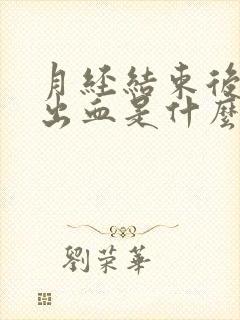 月经結束後
出血是什麼
劉荣華